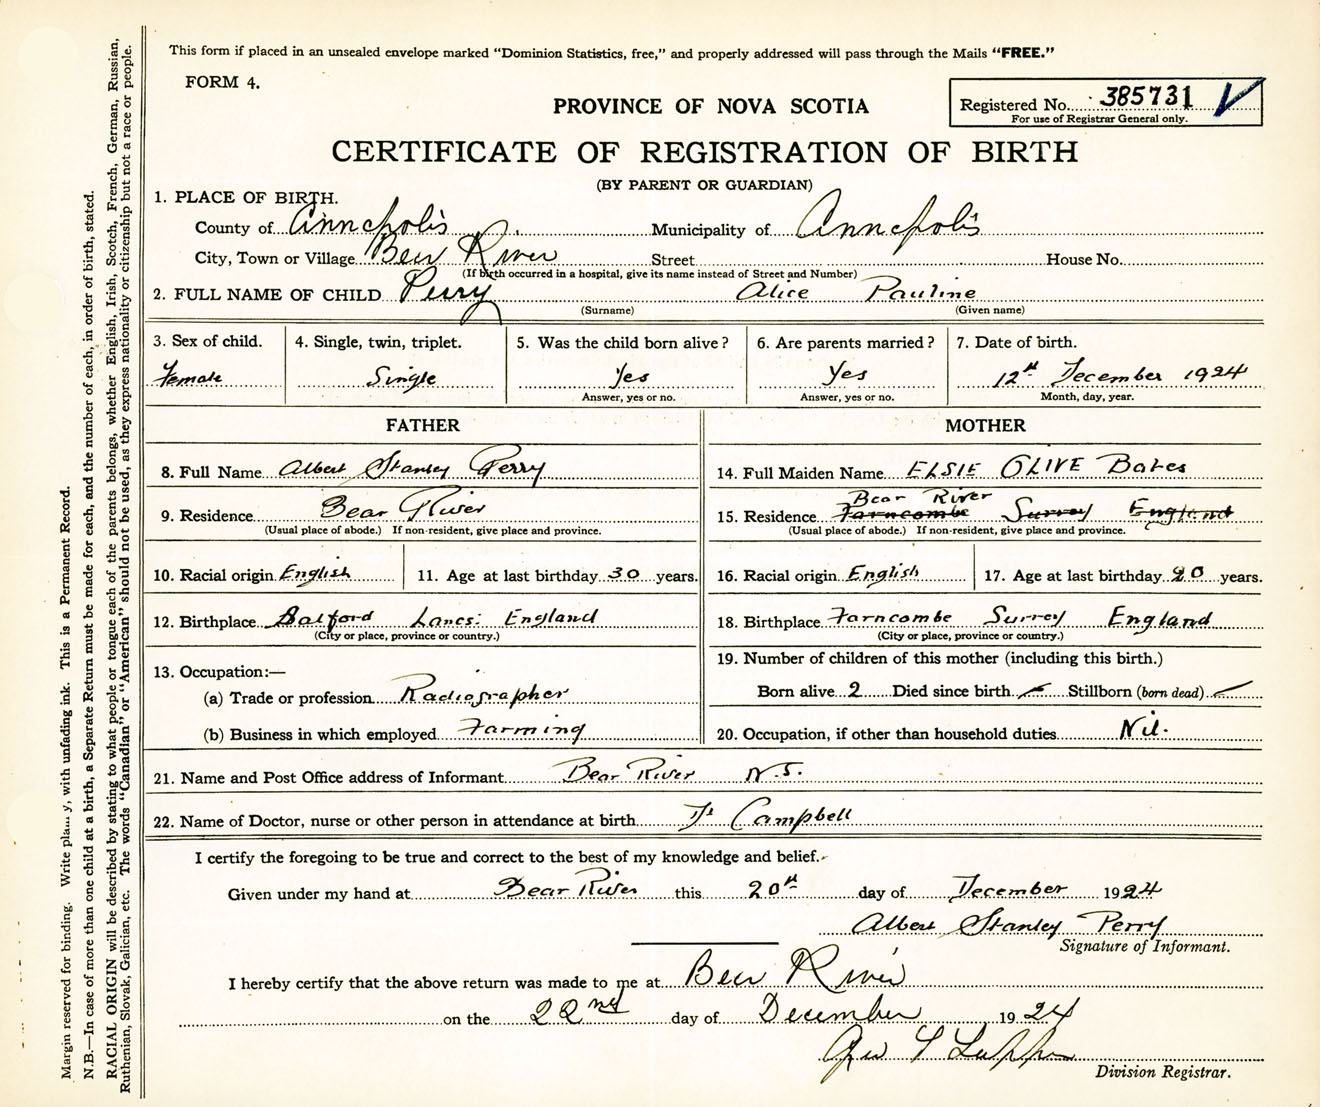 This form if placed in an unsealed envelope marked "Dominion Statistics, free," and properly addressed will pass through the Mails "FREE."
FORM 4.
PROVINCE OF NOVA SCOTIA
Registered No. 385731
For use of Registrar General only.
CERTIFICATE OF REGISTRATION OF BIRTH
(BY PARENT OR GUARDIAN)
1. PLACE OF BIRTH.
County of Annapolis Municipality of Annapolis
City, Town or Village Bear River Street House No.
(If birth occurred in a hospital, give its name instead of Street and Number)
2. FULL NAME OF CHILD Perry Alice Pauline
(Surname) (Given name)
3. Sex of child. 4. Single, twin, triplet. 5. Was the child born alive? 6. Are parents married? 7. Date of birth.
Female Single Yes Yes 12th December 1924
Answer, yes or no. Answer, yes or no. Month, day, year.
FATHER
8. Full Name Albert Stanley Perry
9. Residence Bear River
(Usual place of abode.) If non-resident, give place and province.
10. Racial origin English 11. Age at last birthday 30 years.
12. Birthplace Salford Lancs: England
(City or place, province or country.)
13. Occupation:—
(a) Trade or profession Radiographer
(b) Business in which employed Farming
MOTHER
14. Full Maiden Name ELSIE OLIVE Bates
Bear River
15. Residence Farncombe Surrey England
(Usual place of abode.) If non-resident, give place and province.
16. Racial origin English 17. Age at last birthday 20 years.
18. Birthplace Farncombe Surrey England
(City or place, province or country.)
19. Number of children of this mother (including this birth.)
Born alive 2 Died since birth Stillborn (born dead)
20. Occupation, if other than household duties Nil.
21. Name and Post Office address of Informant Bear River N.S.
22. Name of Doctor, nurse or other person in attendance at birth Campbell
I certify the foregoing to be true and correct to the best of my knowledge and belief.
Given under my hand at Bear River this 20th day of December 1924
Albert Stanley Perry
Signature of Informant.
I hereby certify that the above return was made to me at Bear River
on the 22nd day of December 1924
Geo
Division Registrar.
Margin reserved for binding. Write plainly, with unfading ink. This is a Permanent Record.
N.B.—In case of more than one child at a birth, a Separate Return must be made for each, and the number of each, in order of birth, stated.
RACIAL ORIGIN will be described by stating to what people or tongue each of the parents belongs, whether English, Irish, Scotch, French, German, Russian,
Ruthenian, Slovak, Galician, etc. The words "Canadian" or "American" should not be used, as they express nationality or citizenship but not a race or people.